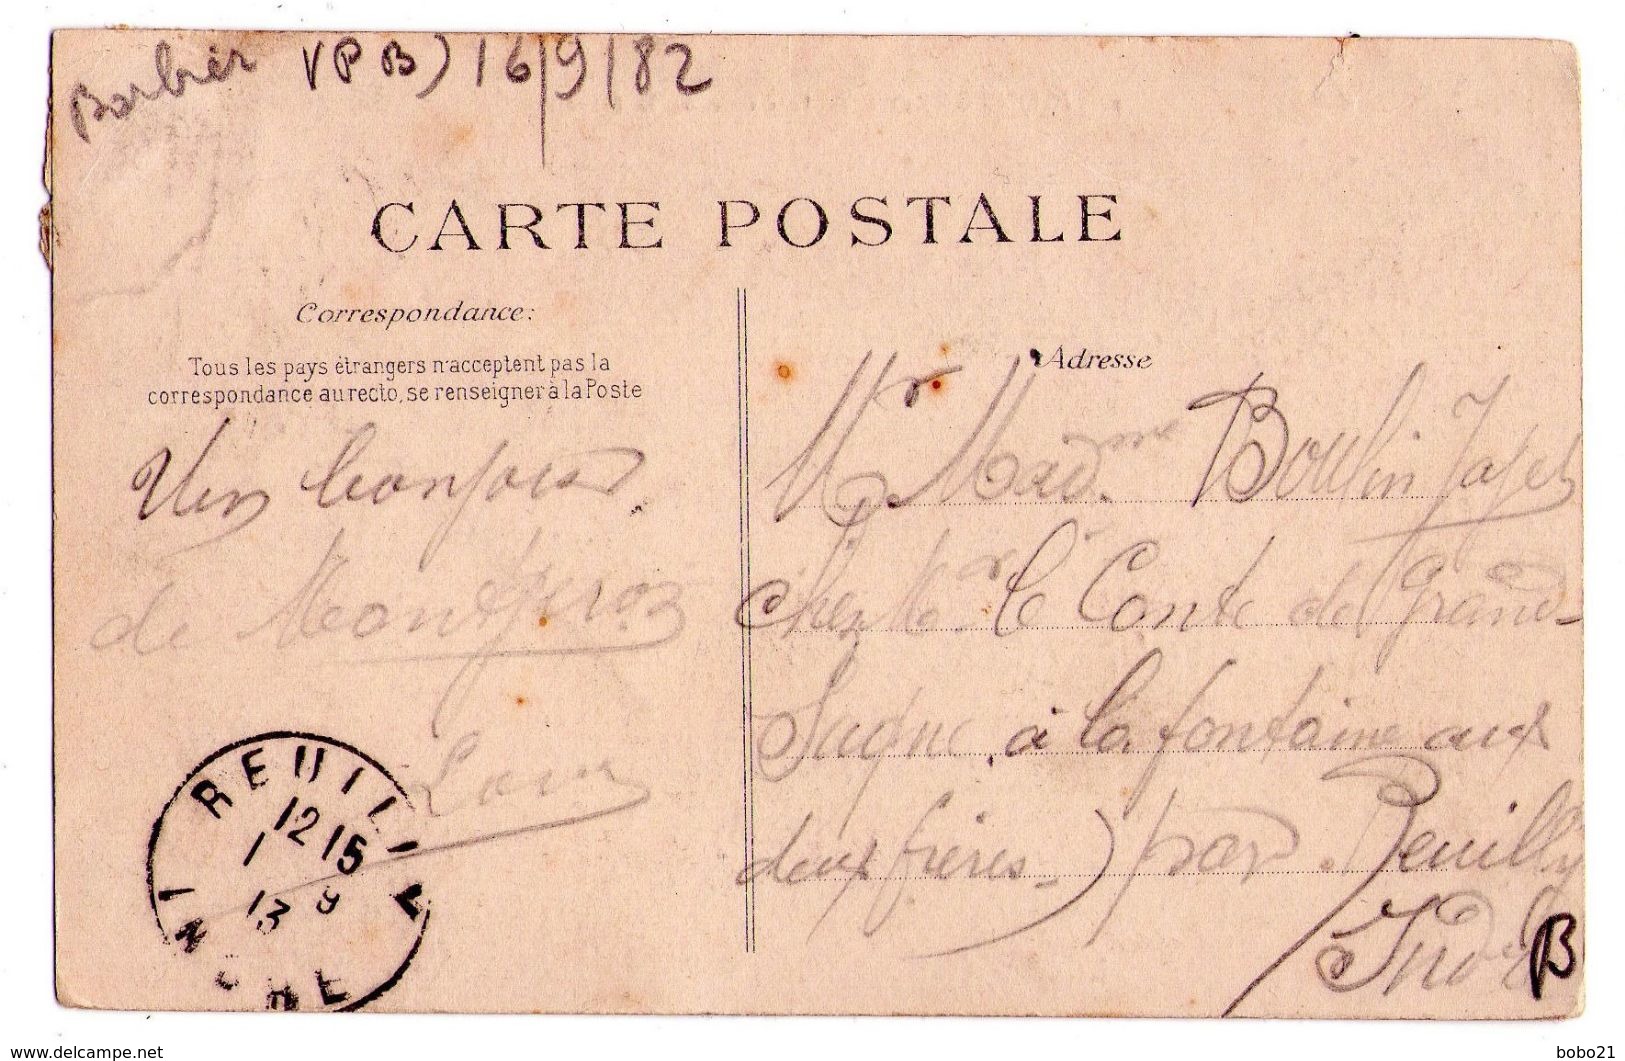 Barbier VPB) 16/9/82
CARTE POSTALE
Correspondance:
Tous les pays étrangers n'acceptent pas la
correspondance au recto, se renseigner à la Poste
Un bonjour
de Montgeron
Adresse
Mr Madme Boulin
chez Mr le Conte de Grand-
à la fontaine aux
deux frères-) par Reuilly
Indre
B
REUILLY
12 15
1
13 9
INDRE
www.delcampe.net
bobo21